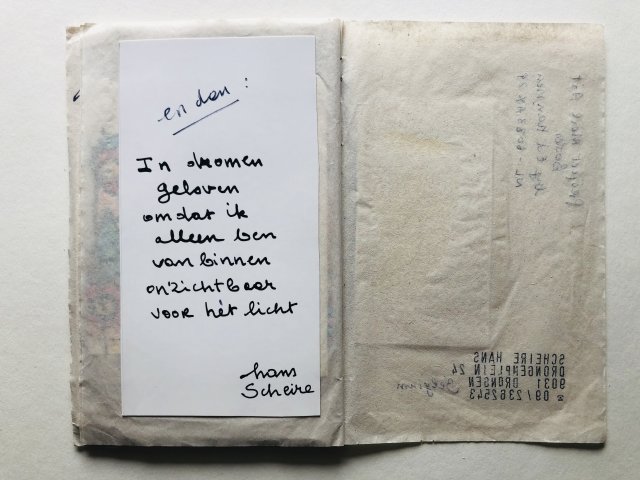 en dan :
In dromen
geloven
omdat ik
alleen ben
van binnen
on'zichtbaar
voor hèt licht
hans
Scheire
SCHEIRE HANS
DRONGENPLEIN 24
9031 DRONGEN
☎ 09/2362543
Belgium